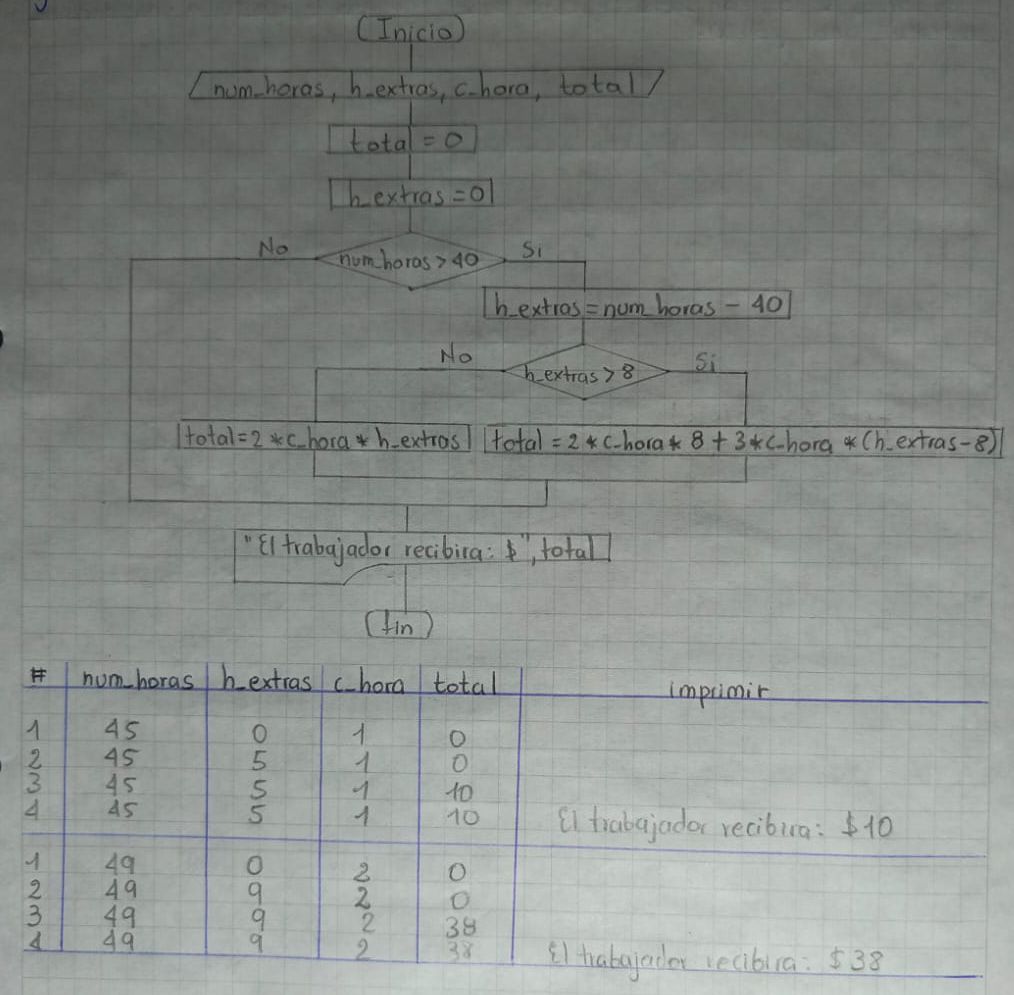 Inicio
num_horas, h_extras, c_hora, total
total = 0
h_extras = 0
No
num_horas > 40
Si
h_extras = num_horas - 40
No
h_extras > 8
Si
total = 2 * c_hora * h_extras
total = 2 * c_hora * 8 + 3 * c_hora * (h_extras - 8)
"El trabajador recibira: $", total
fin
# num_horas h_extras c_hora total imprimir
1 45 0 1 0
2 45 5 1 0
3 45 5 1 10
4 45 5 1 10 El trabajador recibira: $10
1 49 0 2 0
2 49 9 2 0
3 49 9 2 38
4 49 9 2 38 El trabajador recibira: $38